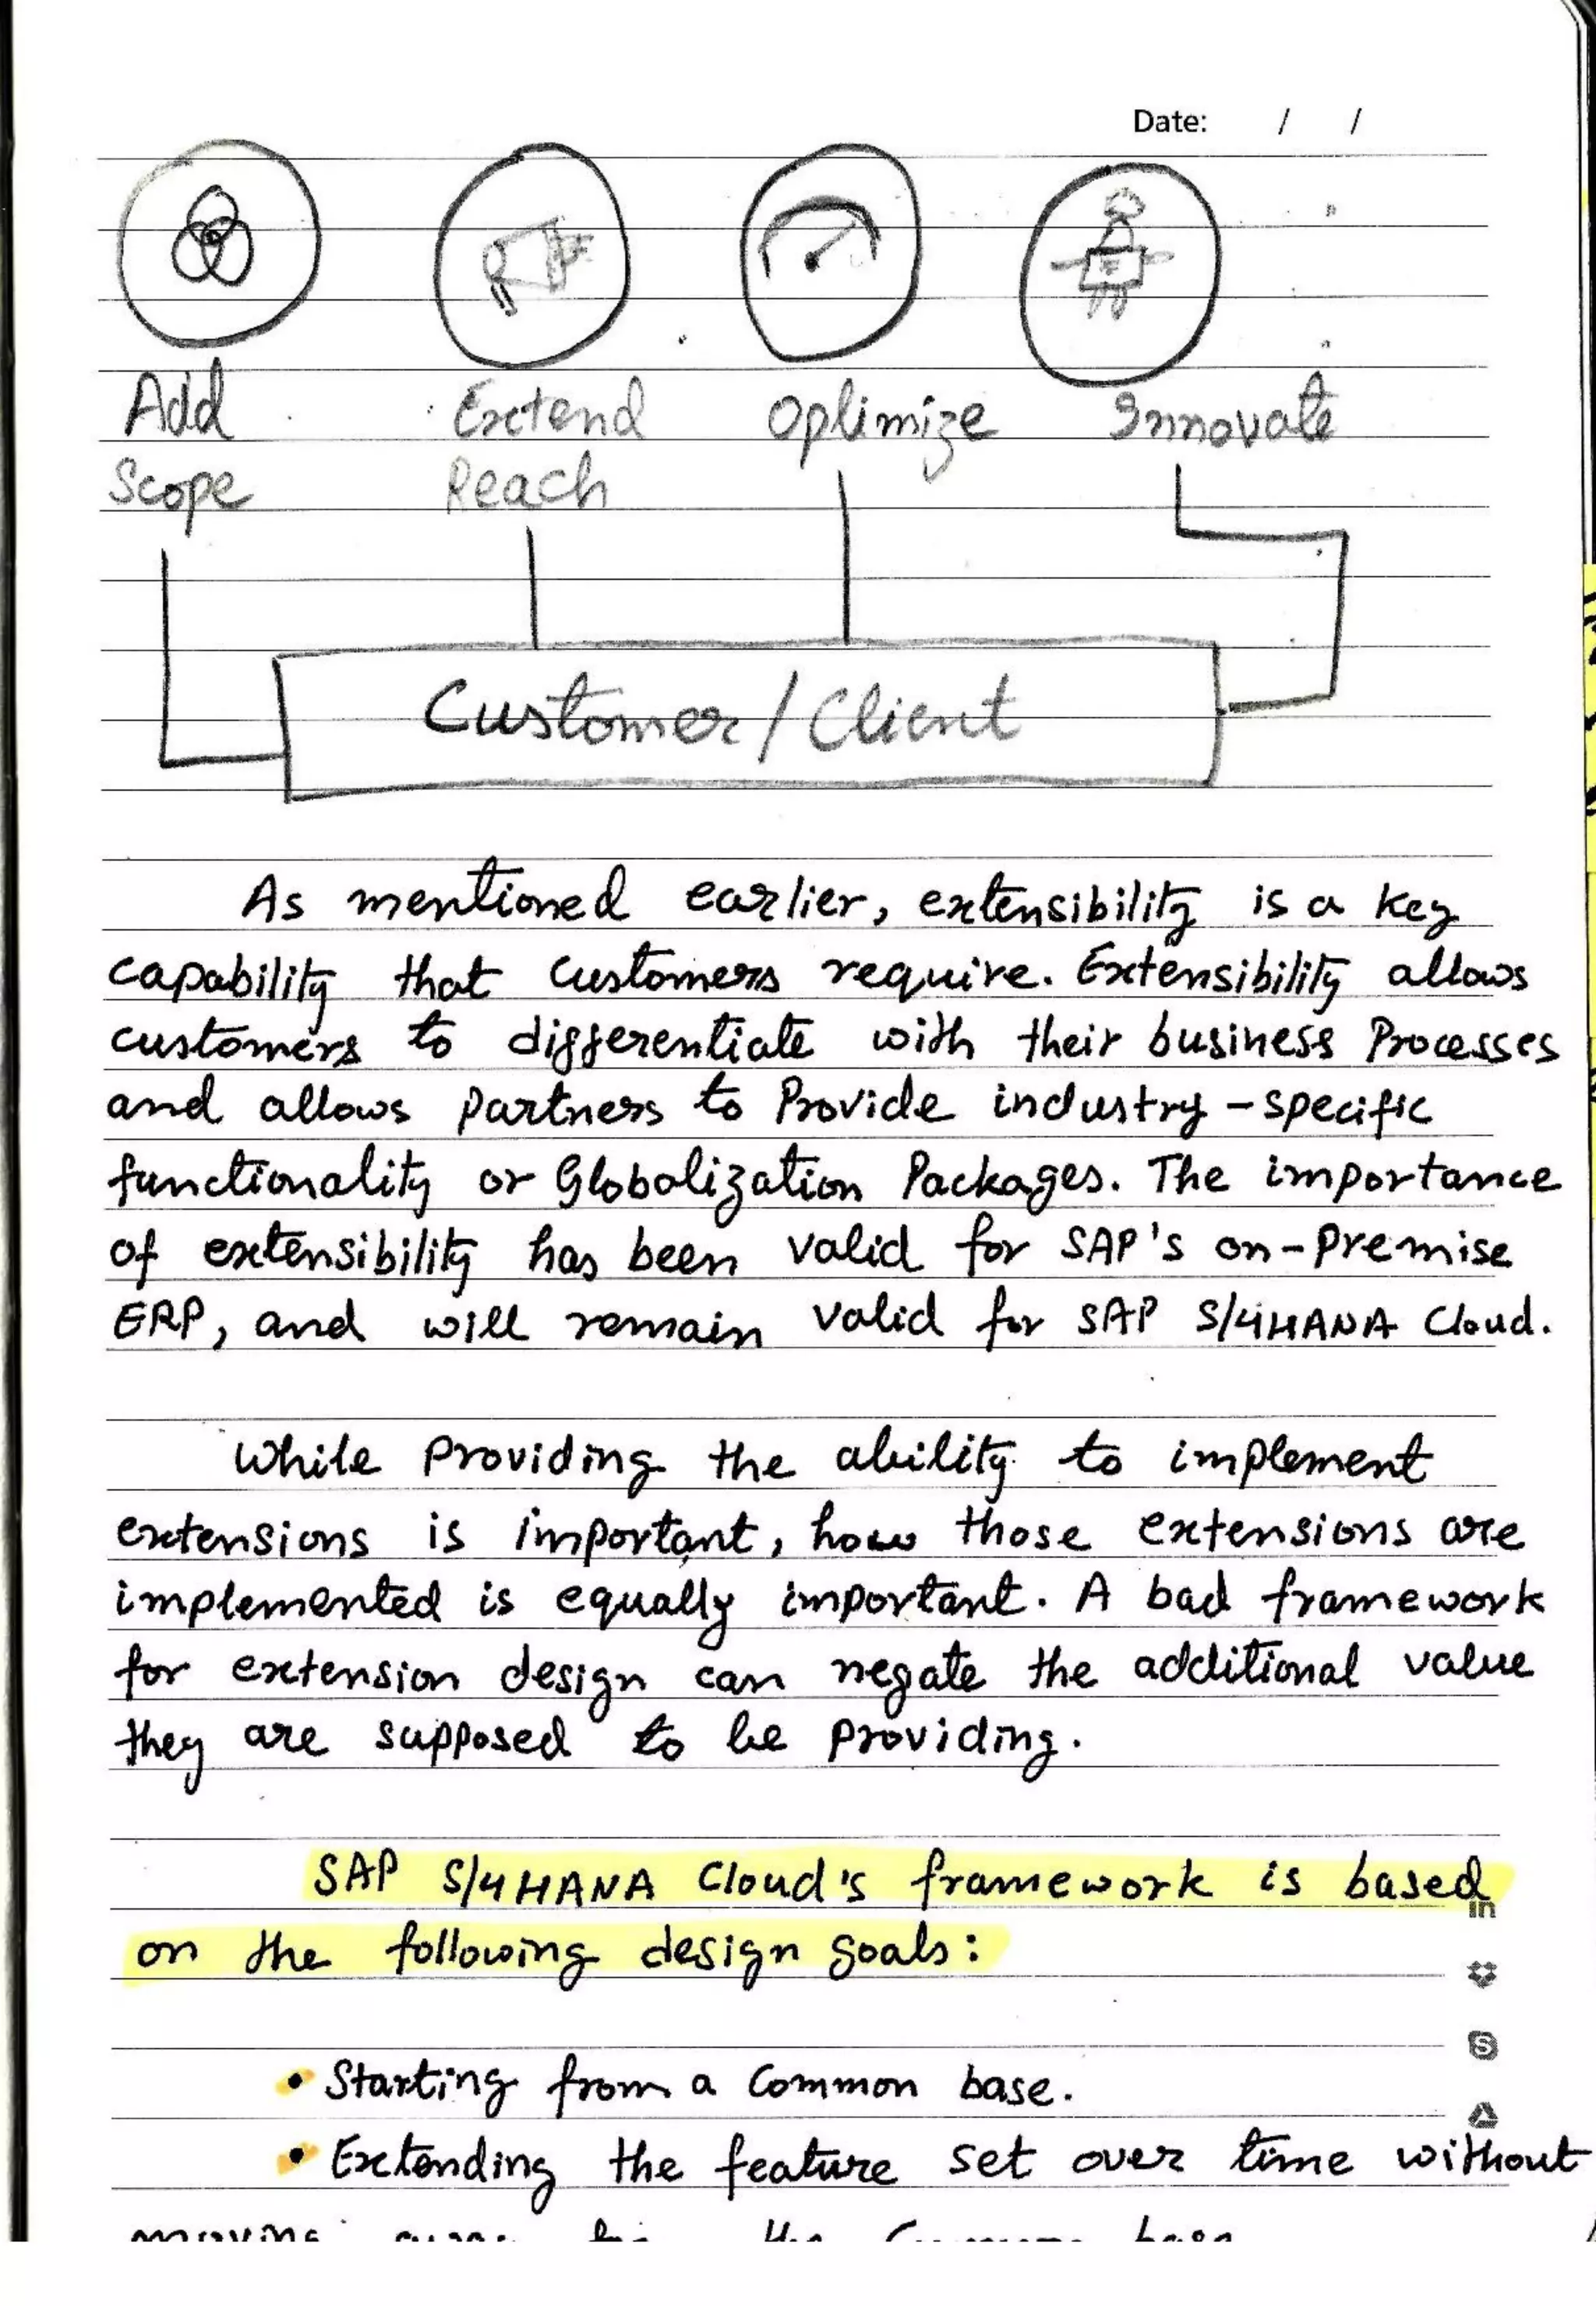 Date: / /
Add Extend Optimize Innovate
Scope Reach
Customer/Client
As mentioned earlier, extensibility is a key
capability that customers require. Extensibility allows
customers to differentiate with their business Processes
and allows partners to Provide industry-specific
functionality or Globalization Packages. The importance
of extensibility has been valid for SAP's on-premise
ERP, and will remain valid for SAP S/4HANA Cloud.
While Providing the ability to implement
extensions is important, how those extensions are
implemented is equally important. A bad framework
for extension design can negate the additional value
they are supposed to be providing.
SAP S/4HANA Cloud's framework is based
in
on the following design goals:
• Starting from a Common base.
• Extending the feature set over time without
base